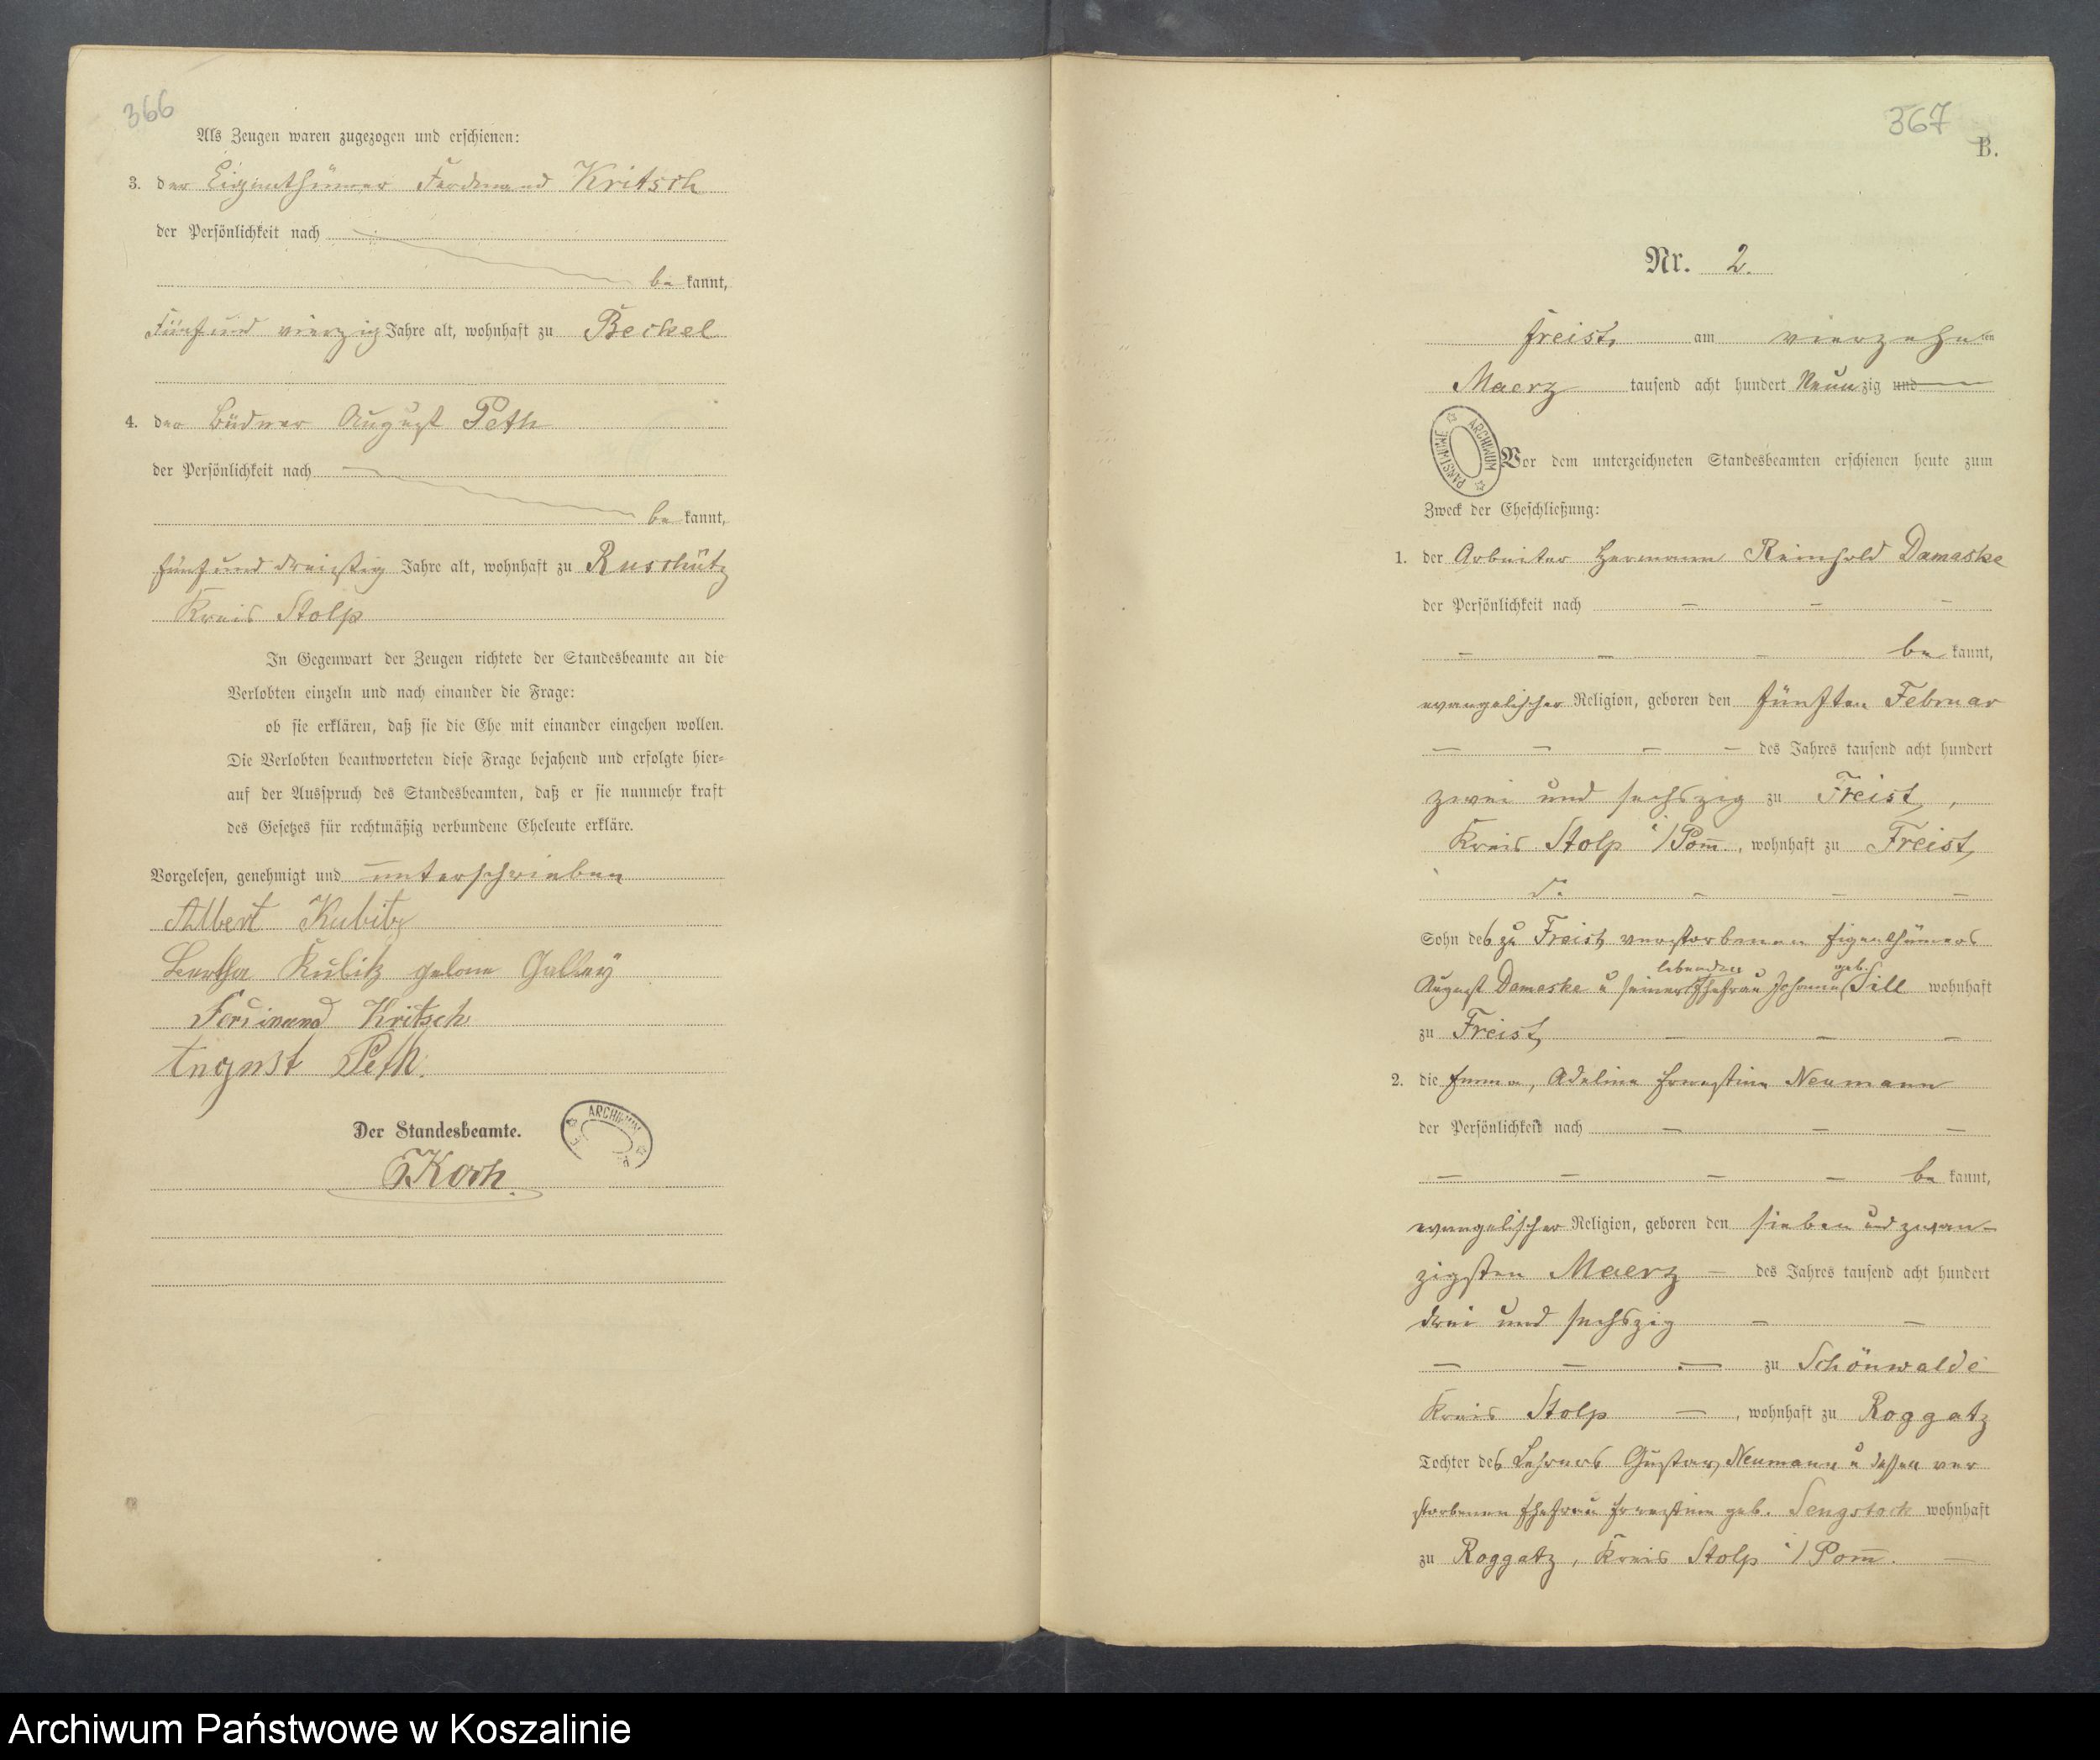 366
Als Zeugen waren zugezogen und erschienen:
3. der Eigenthümer Ferdinand Kritsch
der Persönlichkeit nach
be kannt,
Fünf und vierzig Jahre alt, wohnhaft zu Beckel
4. der Büdner August Peth
der Persönlichkeit nach
be kannt,
fünf und dreißig Jahre alt, wohnhaft zu Ruschütz
Kreis Stolp
In Gegenwart der Zeugen richtete der Standesbeamte an die
Verlobten einzeln und nach einander die Frage:
ob sie erklären, daß sie die Ehe mit einander eingehen wollen.
Die Verlobten beantworteten diese Frage bejahend und erfolgte hier-
auf der Ausspruch des Standesbeamten, daß er sie nunmehr kraft
des Gesetzes für rechtmäßig verbundene Eheleute erkläre.
Vorgelesen, genehmigt und unterschrieben
Albert Kubitz
Bertha Kubitz geborne Galley
Ferdinand Kritsch
August Peth.
Der Standesbeamte.
Koch.
ARCHIWUM
367
B.
Nr. 2.
Freist, am vierzehn ten
Maerz tausend acht hundert Neunzig und
ARCHIWUM PAŃSTWOWE
Vor dem unterzeichneten Standesbeamten erschienen heute zum
Zweck der Eheschließung:
1. der Arbeiter Hermann Reinhold Damaske
der Persönlichkeit nach – – –
– – – be kannt,
evangelischer Religion, geboren den fünften Februar
– – – – des Jahres tausend acht hundert
zwei und sechszig zu Freist,
Kreis Stolp i/Pom̅., wohnhaft zu Freist,
– – –
Sohn des zu Freist verstorbenen Eigenthümers
lebenden geb.
August Damaske u seiner Ehefrau Johanne Sill wohnhaft
zu Freist, – – –
2. die Emma, Adeline Ernestine Neumann
der Persönlichkeit nach – – –
– – – – be kannt,
evangelischer Religion, geboren den sieben und zwan-
zigsten Maerz – des Jahres tausend acht hundert
drei und sechszig – –
– – – zu Schönwalde
Kreis Stolp –, wohnhaft zu Roggatz
Tochter des Lehrers Gustav Neumann u dessen ver
storbenen Ehefrau Ernestine geb. Sengstock wohnhaft
zu Roggatz, Kreis Stolp i/Pom̅. –
Archiwum Państwowe w Koszalinie